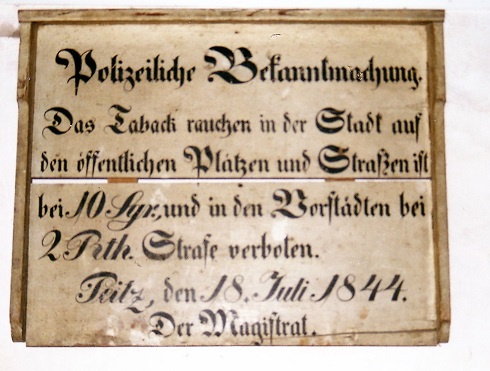 Polizeiliche Bekanntmachung.
Das Taback rauchen in der Stadt auf
den öffentlichen Plätzen und Straßen ist
bei 10 Sgr, und in den Vorstädten bei
2 Rth. Strafe verboten.
Peitz, den 18. Juli 1844.
Der Magistrat.